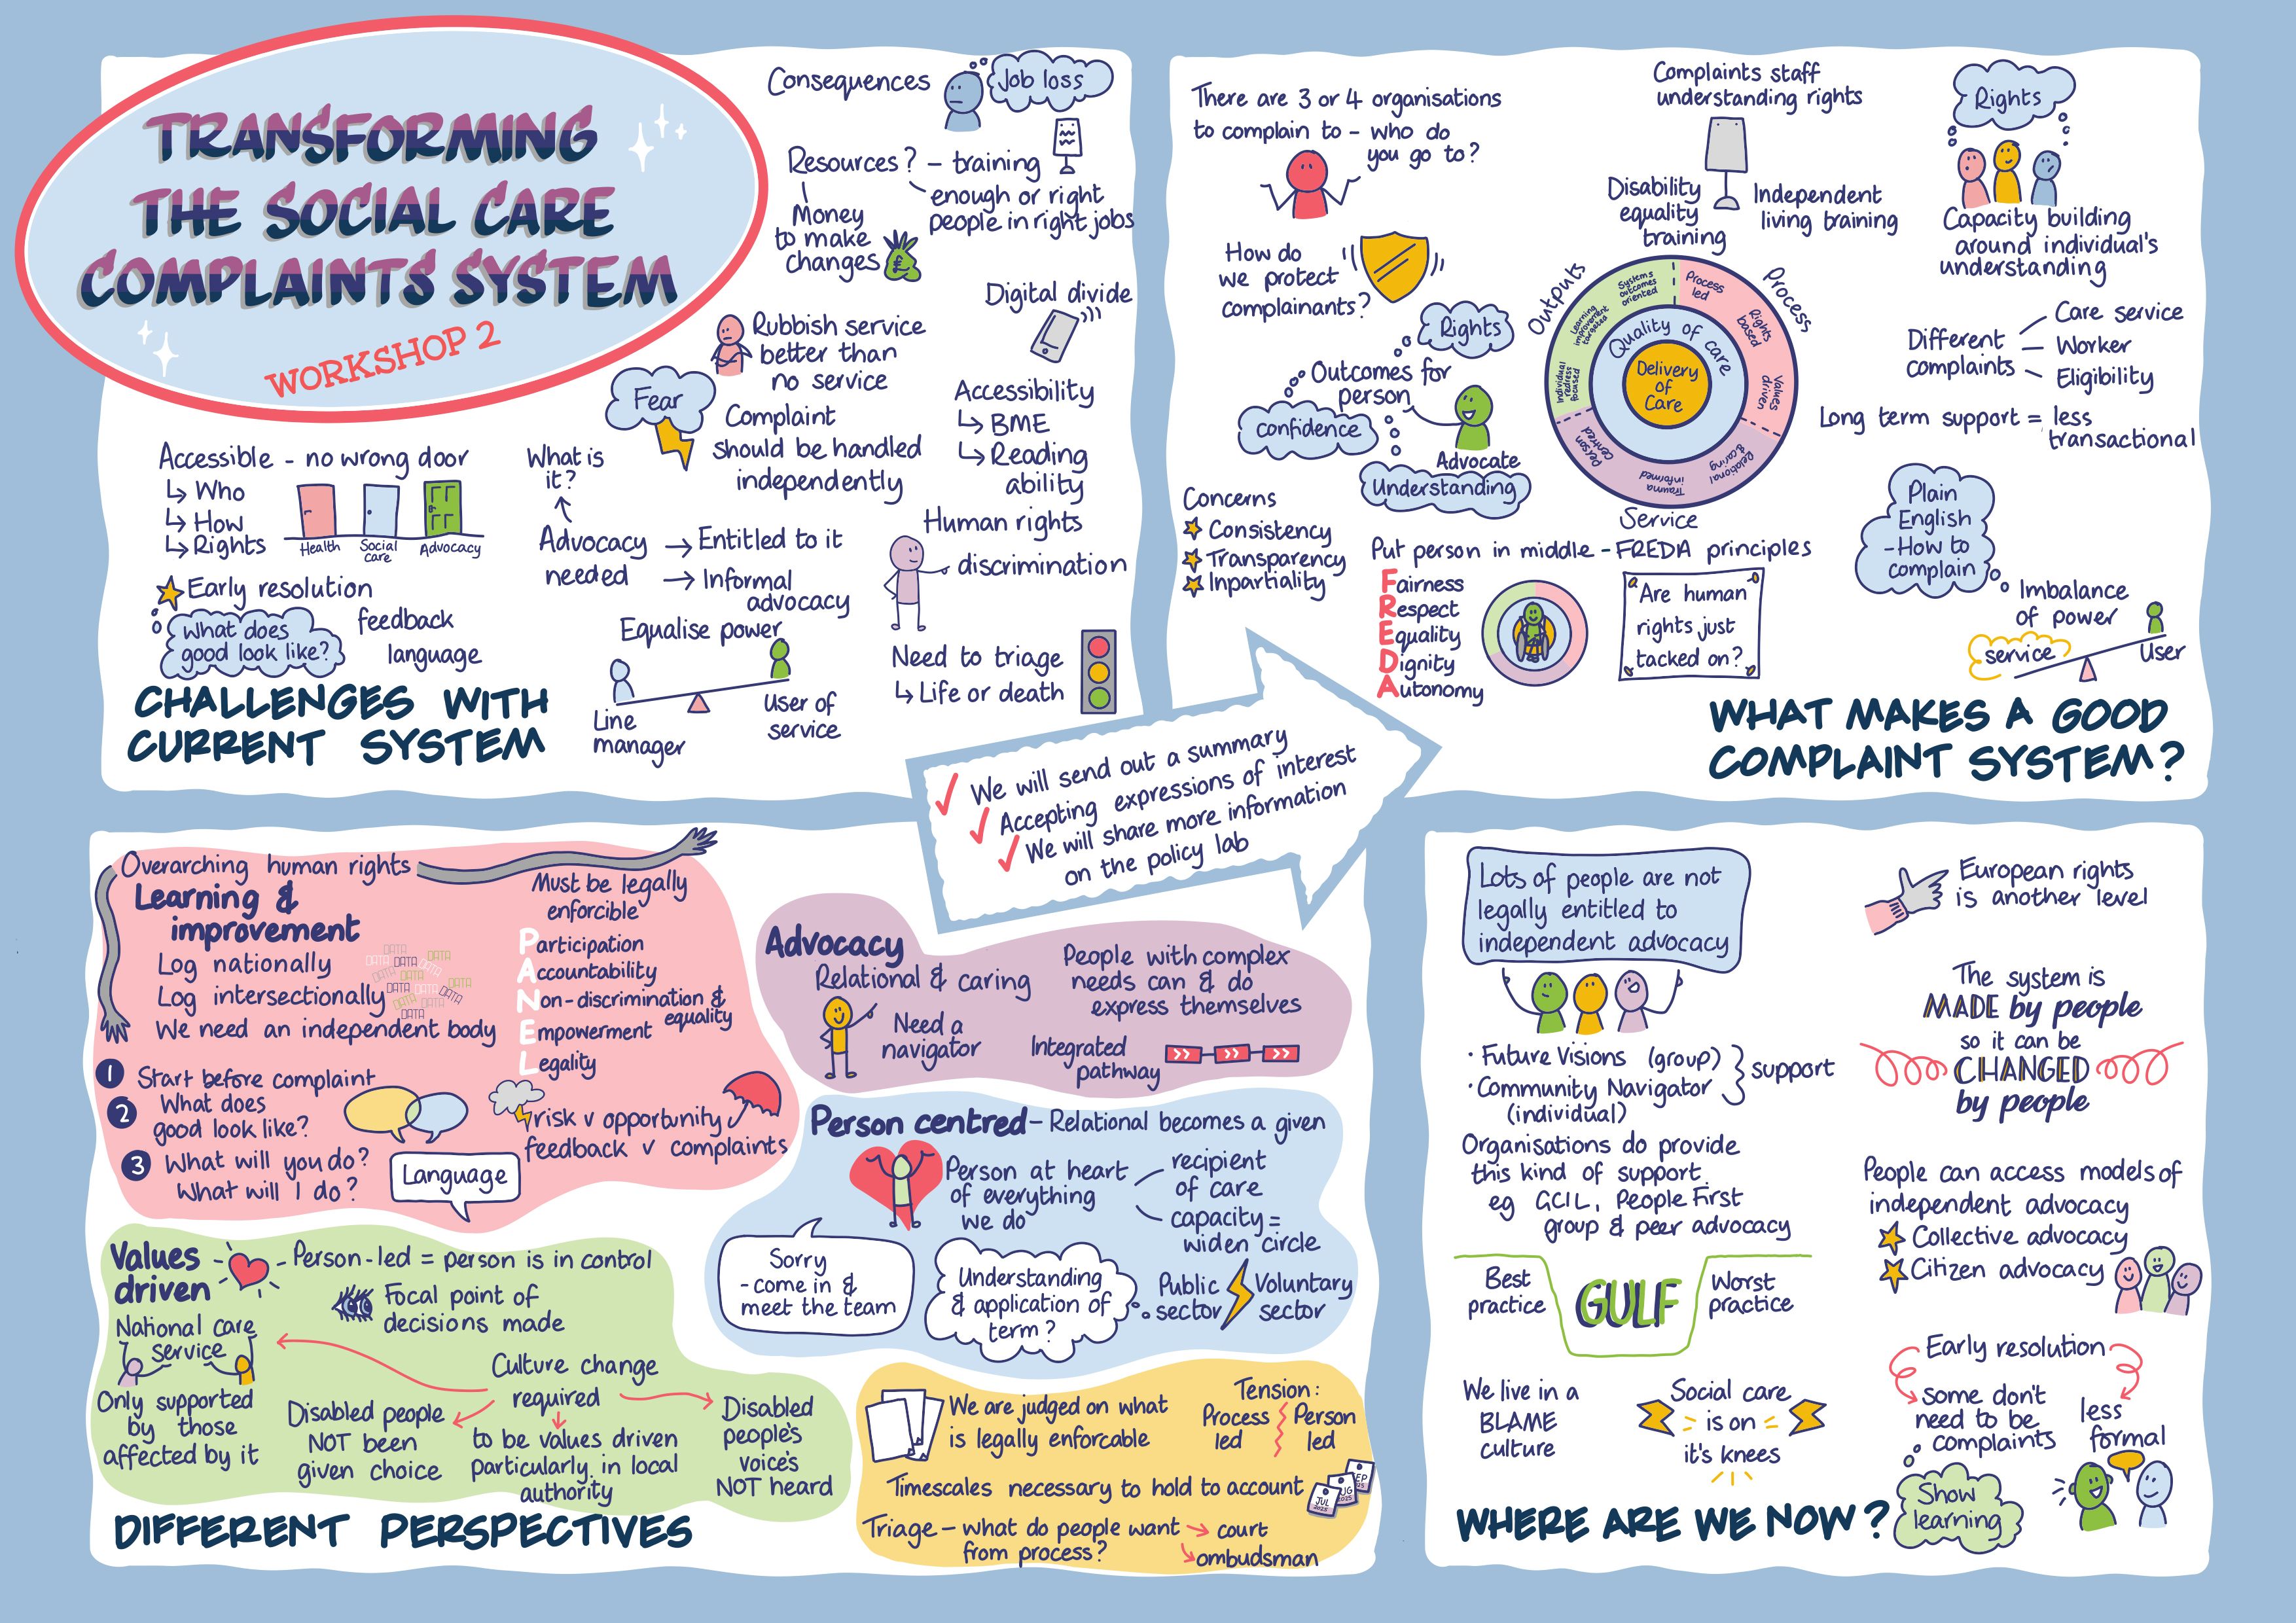 TRANSFORMING
THE SOCIAL CARE
COMPLAINTS SYSTEM
WORKSHOP 2
Consequences
Job loss
Resources? - training
enough or right
people in right jobs
Money
to make
changes
£
Digital divide
Rubbish service
better than
no service
Fear
Complaint
should be handled
independently
Accessibility
↳ BME
↳ Reading
ability
Accessible - no wrong door
↳ Who
↳ How
↳ Rights
Health
Social
care
Advocacy
Early resolution
What does
good look like?
feedback
language
What is
it?
Advocacy
needed
→ Entitled to it
→ Informal
advocacy
Human rights
discrimination
Equalise power
Line
manager
User of
service
Need to triage
↳ Life or death
CHALLENGES WITH
CURRENT SYSTEM
There are 3 or 4 organisations
to complain to - who do
you go to?
How do
we protect
complainants?
Rights
Outcomes for
person
confidence
Advocate
Understanding
Concerns
Consistency
Transparency
Inpartiality
Complaints staff
understanding rights
Disability
equality
training
Independent
living training
Outputs
Process
Service
Systems
outcomes
oriented
Learning
improvement
targeted
Individual
redress
focused
Process
led
Rights
based
Values
driven
Relational
& caring
Trauma
informed
Person
centred
Quality of care
Delivery
of
Care
Put person in middle - FREDA principles
Fairness
Respect
Equality
Dignity
Autonomy
Are human
rights just
tacked on?
Rights
Capacity building
around individual's
understanding
Different
complaints
Care service
Worker
Eligibility
Long term support = less
transactional
Plain
English
- How to
complain
Imbalance
of power
service
User
WHAT MAKES A GOOD
COMPLAINT SYSTEM?
We will send out a summary
Accepting expressions of interest
We will share more information
on the policy lab
Overarching human rights
Learning &
improvement
Log nationally
Log intersectionally
We need an independent body
DATA
DATA
DATA
DATA
DATA
DATA
DATA
DATA
DATA
DATA
DATA
DATA
DATA
DATA
Must be legally
enforcible
Participation
Accountability
Non-discrimination &
equality
Empowerment
Legality
1 Start before complaint
2 What does
good look like?
3 What will you do?
What will I do?
Language
risk v opportunity
feedback v complaints
Advocacy
Relational & caring
Need a
navigator
People with complex
needs can & do
express themselves
Integrated
pathway
Person centred - Relational becomes a given
Person at heart
of everything
we do
recipient
of care
capacity =
widen circle
Sorry
- come in &
meet the team
Understanding
& application of
term?
Public
sector
Voluntary
sector
Values
driven
- Person-led = person is in control
Focal point of
decisions made
National care
service
Only supported
by those
affected by it
Culture change
required
Disabled people
NOT been
given choice
to be values driven
particularly in local
authority
Disabled
people's
voice's
NOT heard
We are judged on what
is legally enforcable
Tension:
Process
led
Person
led
Timescales necessary to hold to account
JUL
2025
UG
2025
EP
25
Triage - what do people want
from process?
court
ombudsman
DIFFERENT PERSPECTIVES
Lots of people are not
legally entitled to
independent advocacy
· Future Visions (group)
· Community Navigator
(individual)
support
Organisations do provide
this kind of support
eg GCIL, People First
group & peer advocacy
Best
practice
GULF
Worst
practice
We live in a
BLAME
culture
Social care
is on
it's knees
European rights
is another level
The system is
MADE by people
so it can be
CHANGED
by people
People can access models of
independent advocacy
Collective advocacy
Citizen advocacy
Early resolution
some don't
need to be
complaints
less
formal
Show
learning
WHERE ARE WE NOW?